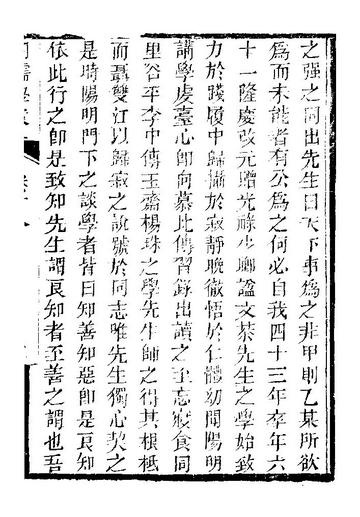 之强之何出先生曰天下事爲之非甲則乙某所欲
爲而未能者有公爲之何必自我四十三年卒年六
十一隆慶改元贈光祿少卿謚文恭先生之學始致
力於踐履中歸攝於寂靜晚徹悟於仁體幼聞陽明
講學虔臺心卽向慕比傳習錄出讀之至忘寢食同
里谷平李中傳玉齋楊珠之學先生師之得其根柢
而聶雙江以歸寂之說號於同志唯先生獨心契之
是時陽明門下之談學者皆曰知善知惡卽是良知
依此行之卽是致知先生謂良知者至善之謂也吾